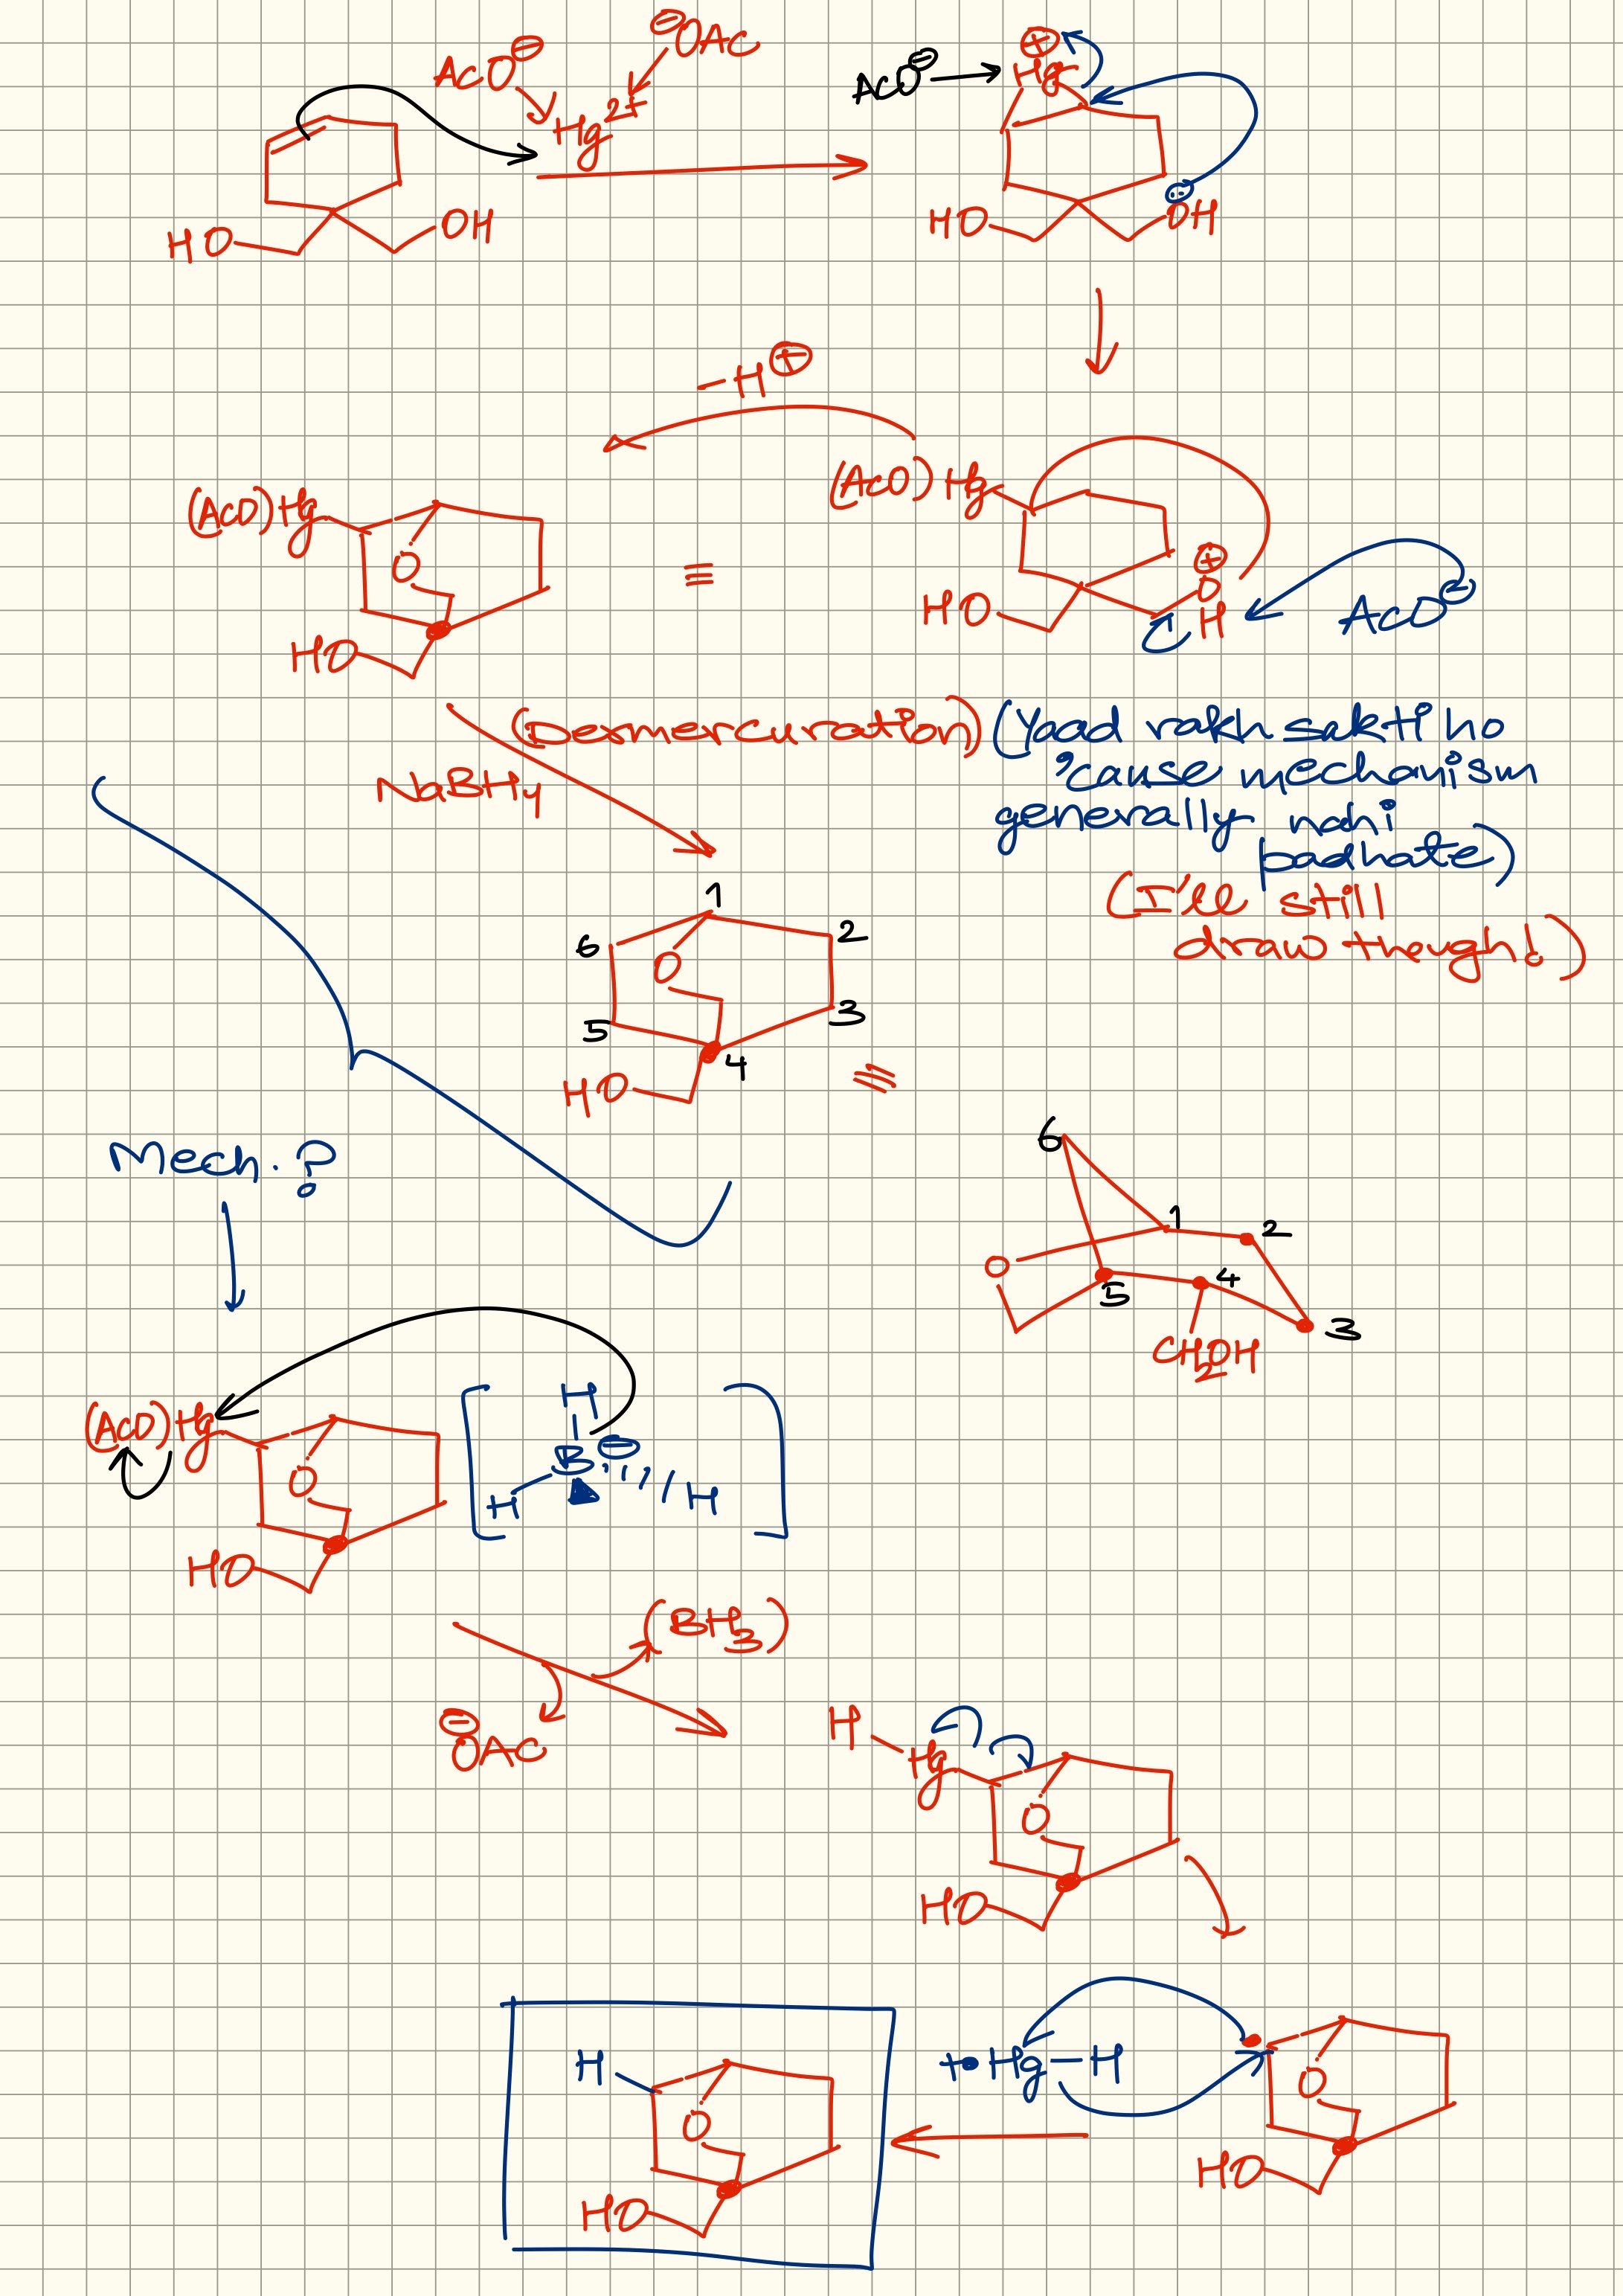 AcO⊖ ⊖OAc
Hg2+
HO OH
AcO⊖ Hg⊕
HO OH
-H⊕
(AcO)Hg
O
HO
≡
(AcO)Hg
HO ⊕O H AcO⊖
(Desmercuration)
NaBH4
(Yaad rakh sakti ho
'cause mechanism
generally nahi
padhate)
(I'll still
draw though!)
1
6 2
O
5 3
4
HO
≡
6
1 2
O
5 4
3
CH2OH
Mech. ?
(AcO)Hg
O
HO
H
B⊖
H H
(BH3)
⊖OAc
H
Hg
O
HO
Hg-H
O
HO
H
O
HO